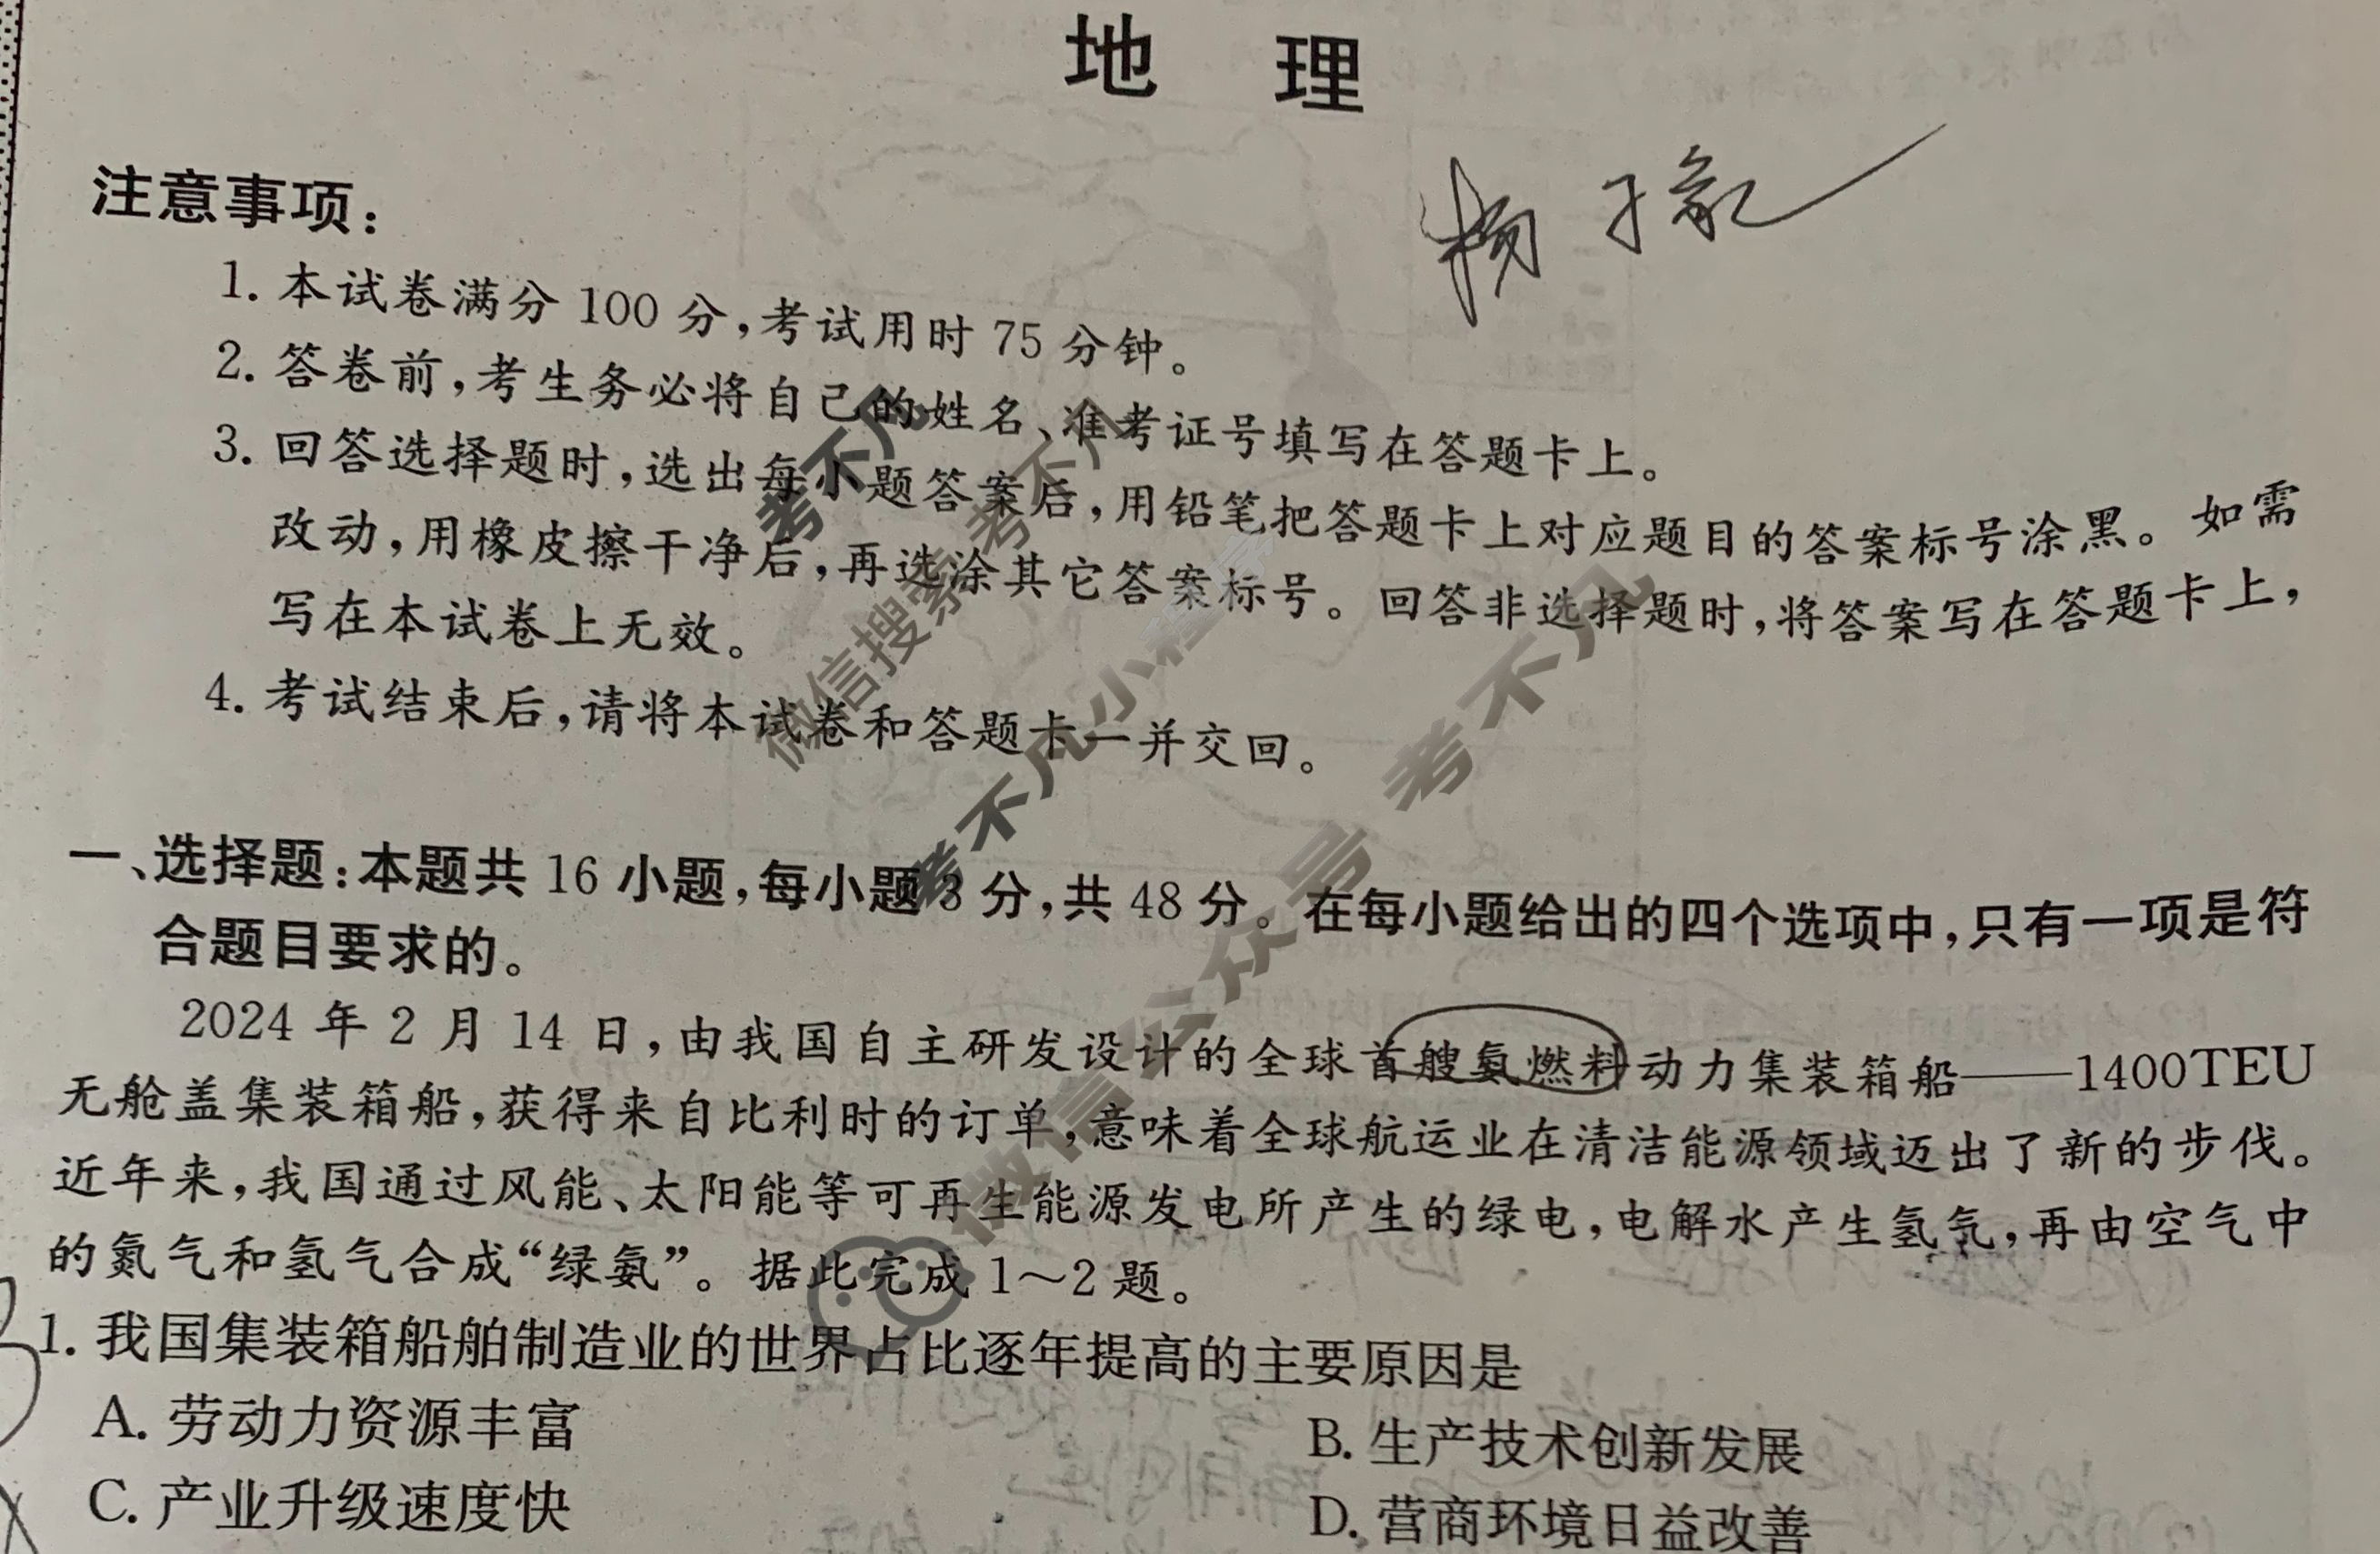 地 理
杨子豪
注意事项：
1. 本试卷满分 100 分，考试用时 75 分钟。
2. 答卷前，考生务必将自己的姓名、准考证号填写在答题卡上。
3. 回答选择题时，选出每小题答案后，用铅笔把答题卡上对应题目的答案标号涂黑。如需
改动，用橡皮擦干净后，再选涂其它答案标号。回答非选择题时，将答案写在答题卡上，
写在本试卷上无效。
4. 考试结束后，请将本试卷和答题卡一并交回。
考不凡
微信搜索 考不凡
考不凡小程序
微信公众号 考不凡
一、选择题：本题共 16 小题，每小题 3 分，共 48 分。在每小题给出的四个选项中，只有一项是符
合题目要求的。
2024 年 2 月 14 日，由我国自主研发设计的全球首艘氨燃料动力集装箱船——1400TEU
无舱盖集装箱船，获得来自比利时的订单，意味着全球航运业在清洁能源领域迈出了新的步伐。
近年来，我国通过风能、太阳能等可再生能源发电所产生的绿电，电解水产生氢气，再由空气中
的氮气和氢气合成“绿氨”。据此完成 1～2 题。
1. 我国集装箱船舶制造业的世界占比逐年提高的主要原因是
A. 劳动力资源丰富
B. 生产技术创新发展
C. 产业升级速度快
D. 营商环境日益改善